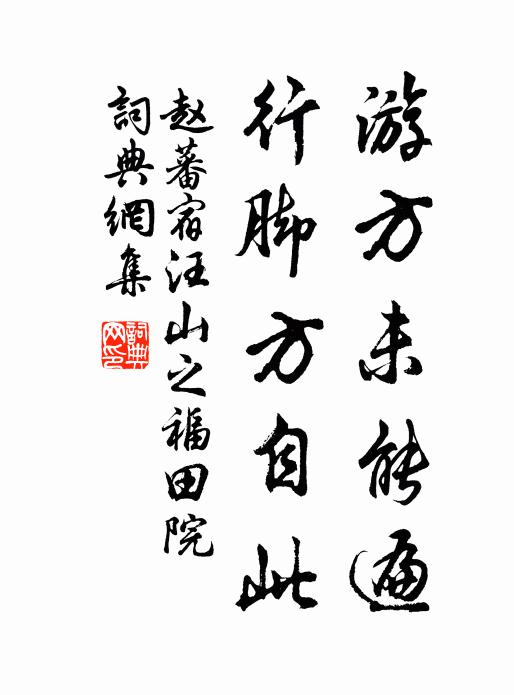 游方未能遍
行脚方自此
赵蕃宿汪山之福田院
詞典網集
詞典网印